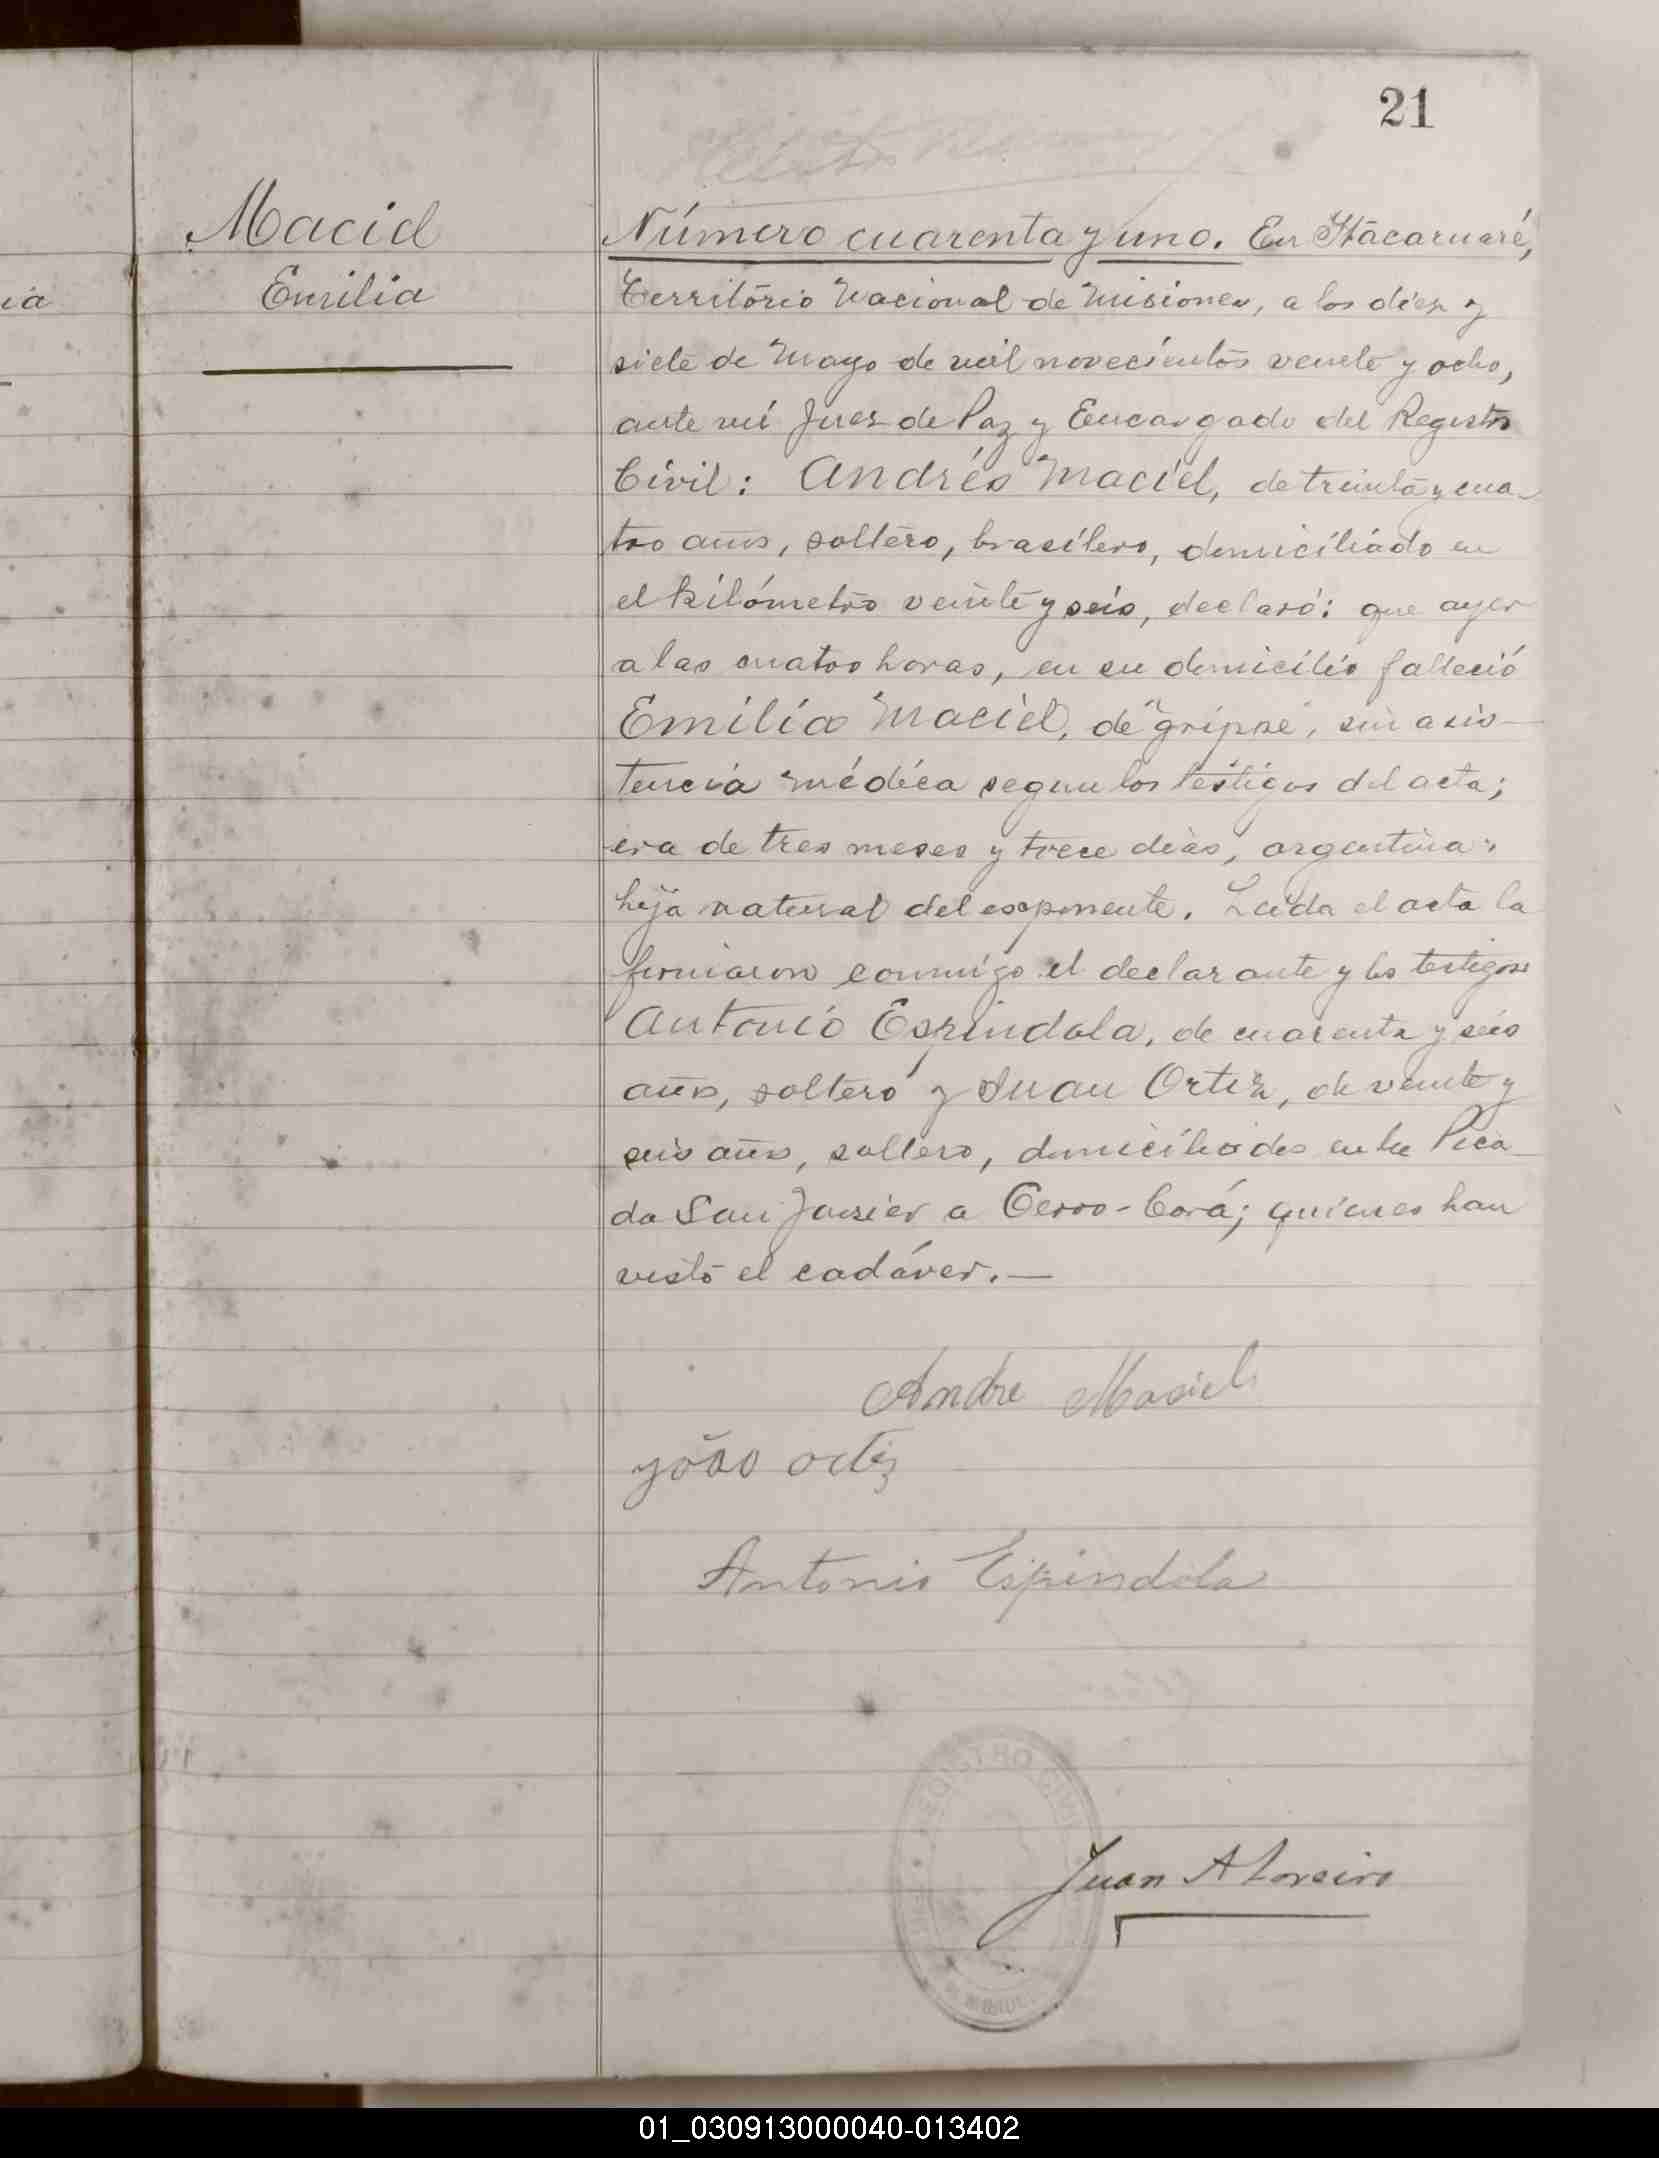 21
Maciel
Emilia
Número cuarenta y uno. En Itacaruaré,
Territorio Nacional de Misiones, a los diez y
siete de Mayo de mil novecientos veinte y ocho,
ante mí Juez de Paz y Encargado del Registro
Civil: Andrés Maciel, de treinta y cua-
tro años, soltero, brasilero, domiciliado en
el kilómetro veinte y seis, declaró: que ayer
a las cuatro horas, en su domicilio falleció
Emilia Maciel, de "grippe", sin asis-
tencia médica segun los testigos del acta;
era de tres meses y trece dias, argentina;
hija natural del esponente. Leida el acta la
firmaron conmigo el declarante y los testigos
Antonio Espindola, de cuarenta y seis
años, soltero y Juan Ortiz, de veinte y
seis años, soltero, domiciliados en la Pica-
da San Javier a Cerro-Corá; quienes han
visto el cadáver.—
Andre Maciel
João Ortiz
Antonio Espindola
REGISTRO CIVIL
Juan A Loreiro
ia
01_030913000040-013402